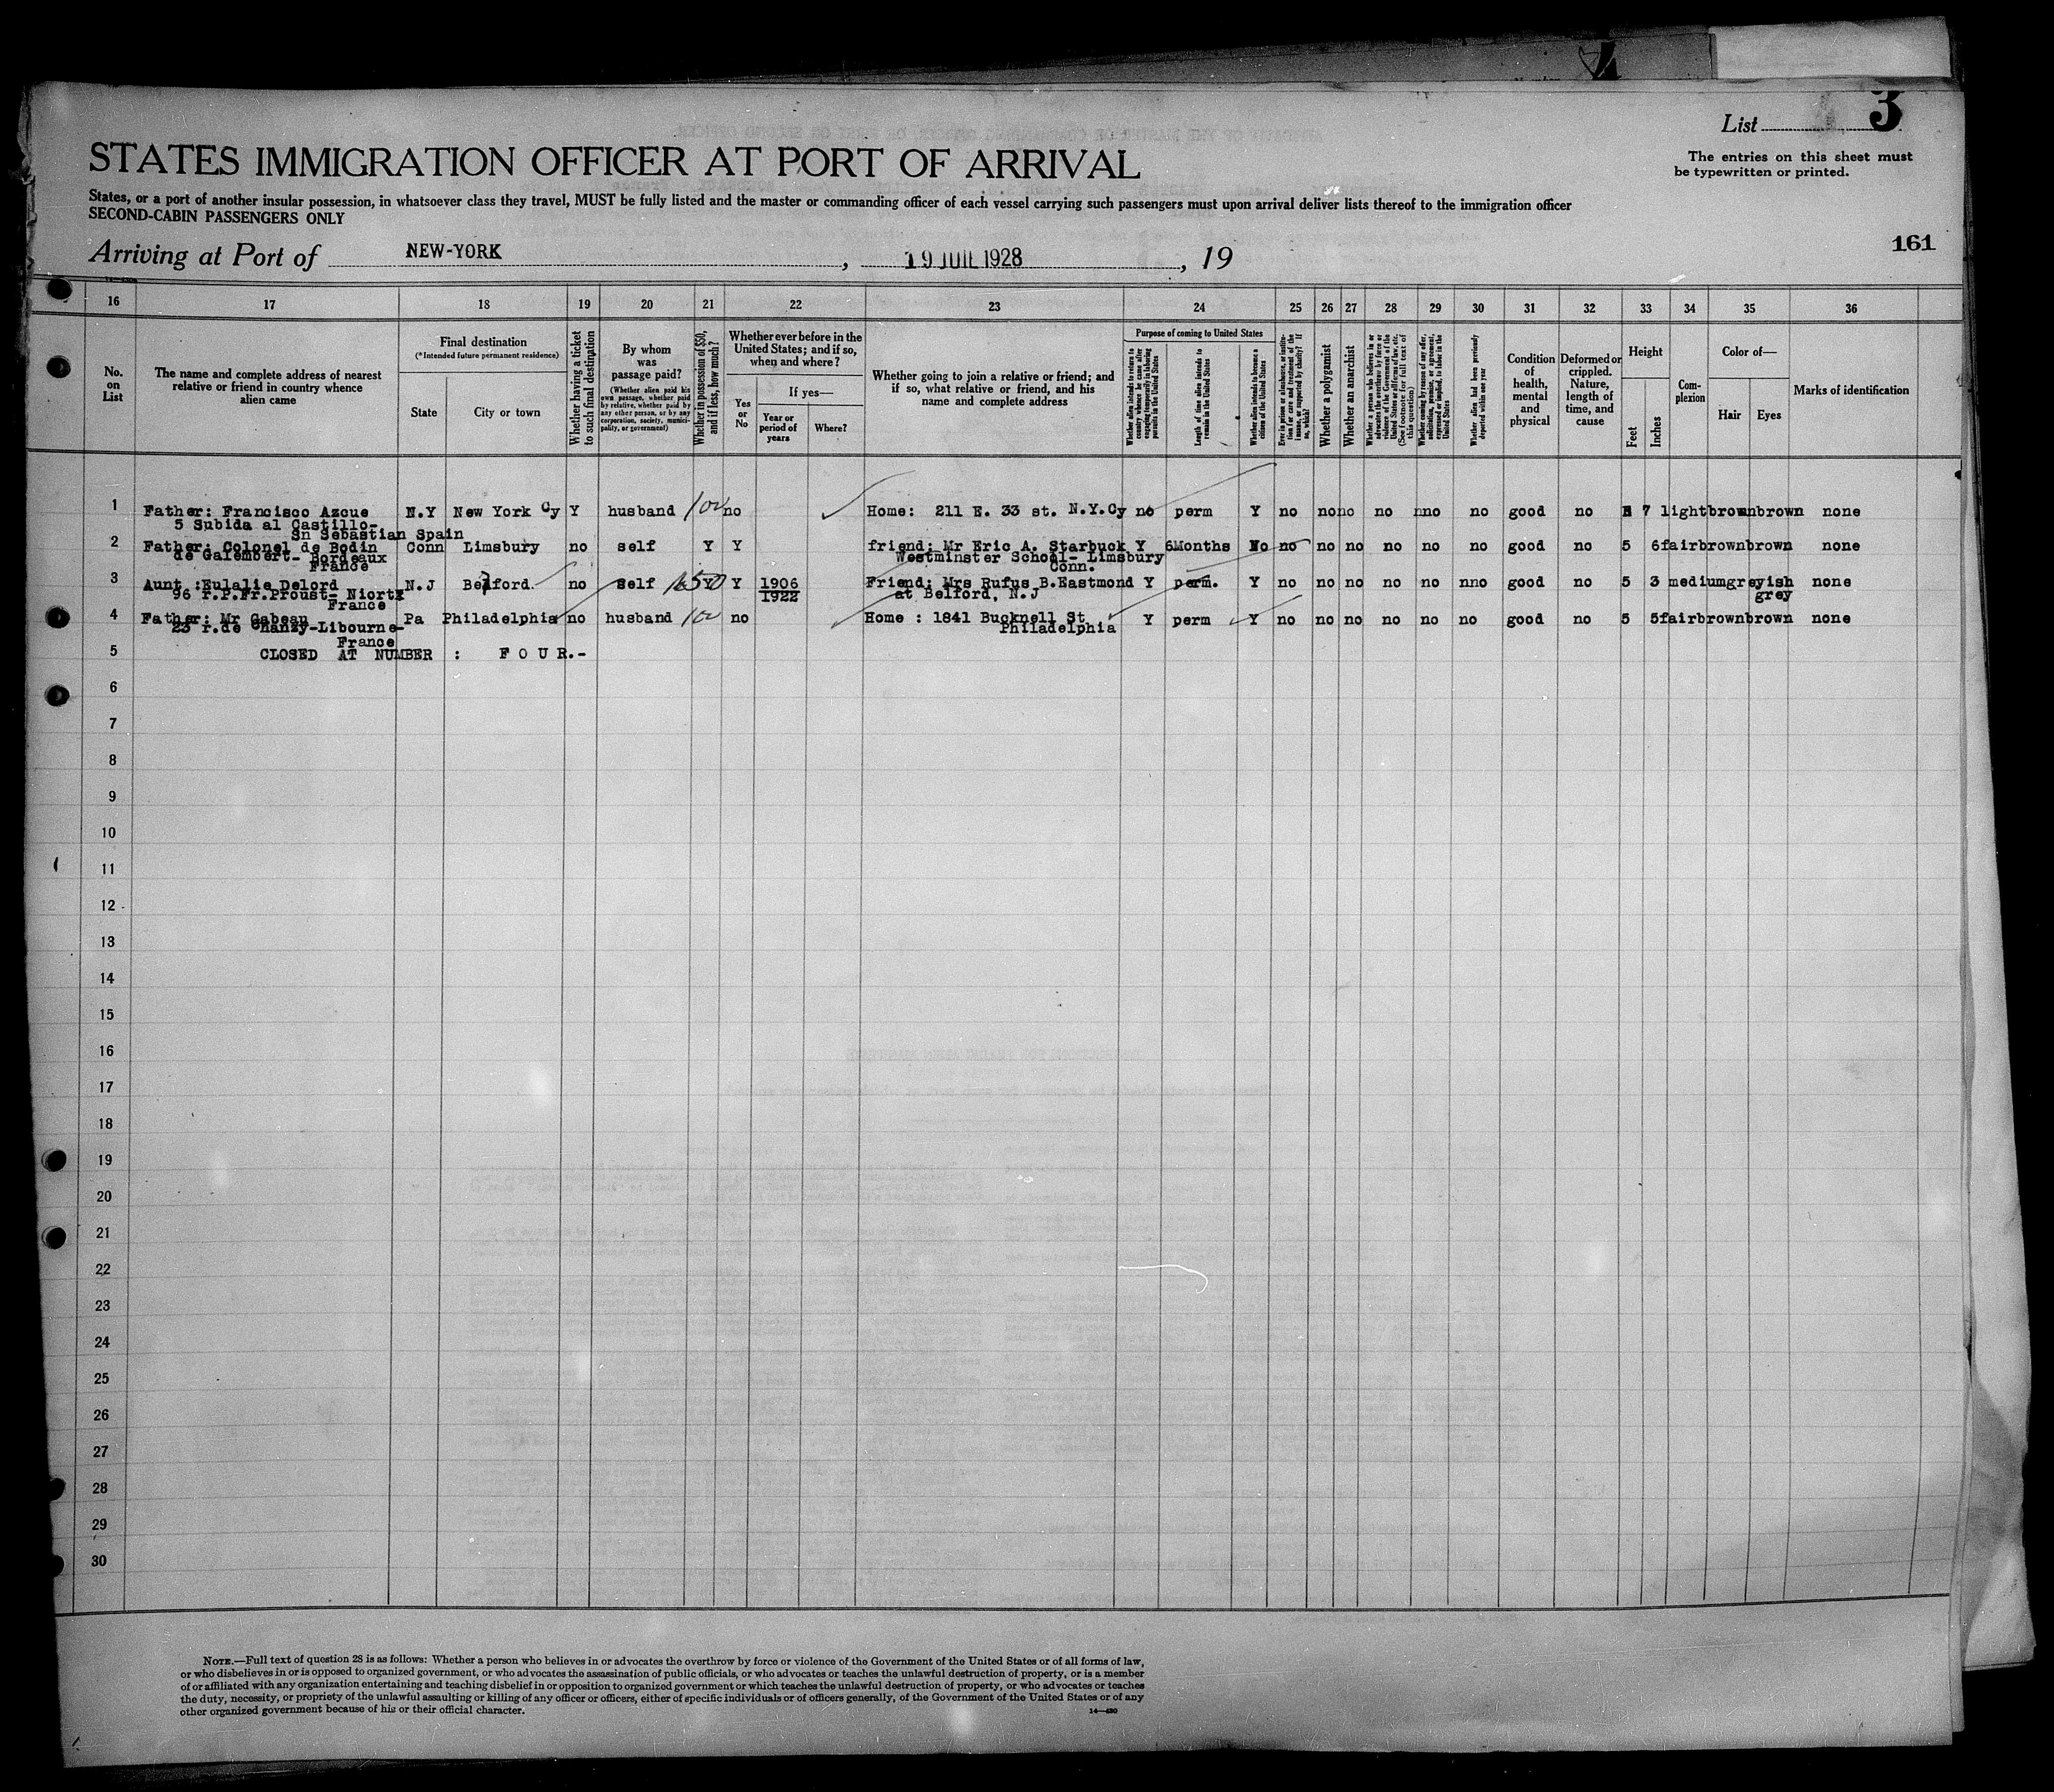 List 3
The entries on this sheet must
be typewritten or printed.
STATES IMMIGRATION OFFICER AT PORT OF ARRIVAL
States, or a port of another insular possession, in whatsoever class they travel, MUST be fully listed and the master or commanding officer of each vessel carrying such passengers must upon arrival deliver lists thereof to the immigration officer
SECOND-CABIN PASSENGERS ONLY
161
Arriving at Port of NEW-YORK, 19 JUIL 1928, 19
16 17 18 19 20 21 22 23 24 25 26 27 28 29 30 31 32 33 34 35 36
No. on List
The name and complete address of nearest relative or friend in country whence alien came
Final destination
(*Intended future permanent residence)
State
City or town
Whether having a ticket to such final destination
By whom was passage paid?
(Whether alien paid his own passage, whether paid by relative, whether paid by any other person, or by any corporation, society, municipality, or government)
Whether in possession of $50, and if less, how much?
Whether ever before in the United States; and if so, when and where?
Yes or No
If yes—
Year or period of years
Where?
Whether going to join a relative or friend; and if so, what relative or friend, and his name and complete address
Purpose of coming to United States
Whether alien intends to return to country whence he came after engaging temporarily in laboring pursuits in the United States
Length of time alien intends to remain in the United States
Whether alien intends to become a citizen of the United States
Ever in prison or almshouse, or institution for care and treatment of the insane, or supported by charity? If so, which?
Whether a polygamist
Whether an anarchist
Whether a person who believes in or advocates the overthrow by force or violence of the Government of the United States or all forms of law, etc. (See footnote for full text of this question)
Whether coming by reason of any offer, solicitation, promise, or agreement, expressed or implied, to labor in the United States
Whether alien had been previously deported within one year
Condition of health, mental and physical
Deformed or crippled. Nature, length of time, and cause
Height
Feet
Inches
Complexion
Color of—
Hair
Eyes
Marks of identification
1 Father: Francisco Azcue N.Y New York Cy Y husband 100 no Home: 211 E. 33 st. N.Y.Cy no perm Y no no no no no no good no 5 7 light brown brown none
5 Subida al Castillo-
Sn Sebastian Spain
2 Father: Colonel de Bodin Conn Limsbury no self Y Y friend: Mr Eric A. Starbuck Y 6Months No no no no no no no good no 5 6 fair brown brown none
de Galembert- Bordeaux Westminster School- Limsbury
France Conn.
3 Aunt :Eulalie Delord N.J Belford no self 650 Y Y 1906 Friend: Mrs Rufus B.Eastmond Y perm. Y no no no no no nno good no 5 3 medium greyish none
96 r.P.Fr.Proust- Niort 1922 at Belford, N.J grey
France
4 Father: Mr Gabeau Pa Philadelphia no husband 100 no Home : 1841 Bucknell St Y perm Y no no no no no no good no 5 5 fair brown brown none
23 r.de Chanzy-Libourne- Philadelphia
France
5 CLOSED AT NUMBER : F O U R.-
6
7
8
9
10
11
12
13
14
15
16
17
18
19
20
21
22
23
24
25
26
27
28
29
30
NOTE.—Full text of question 28 is as follows: Whether a person who believes in or advocates the overthrow by force or violence of the Government of the United States or of all forms of law,
or who disbelieves in or is opposed to organized government, or who advocates the assassination of public officials, or who advocates or teaches the unlawful destruction of property, or is a member
of or affiliated with any organization entertaining and teaching disbelief in or opposition to organized government or which teaches the unlawful destruction of property, or who advocates or teaches
the duty, necessity, or propriety of the unlawful assaulting or killing of any officer or officers, either of specific individuals or of officers generally, of the Government of the United States or of any
other organized government because of his or their official character.
14—430